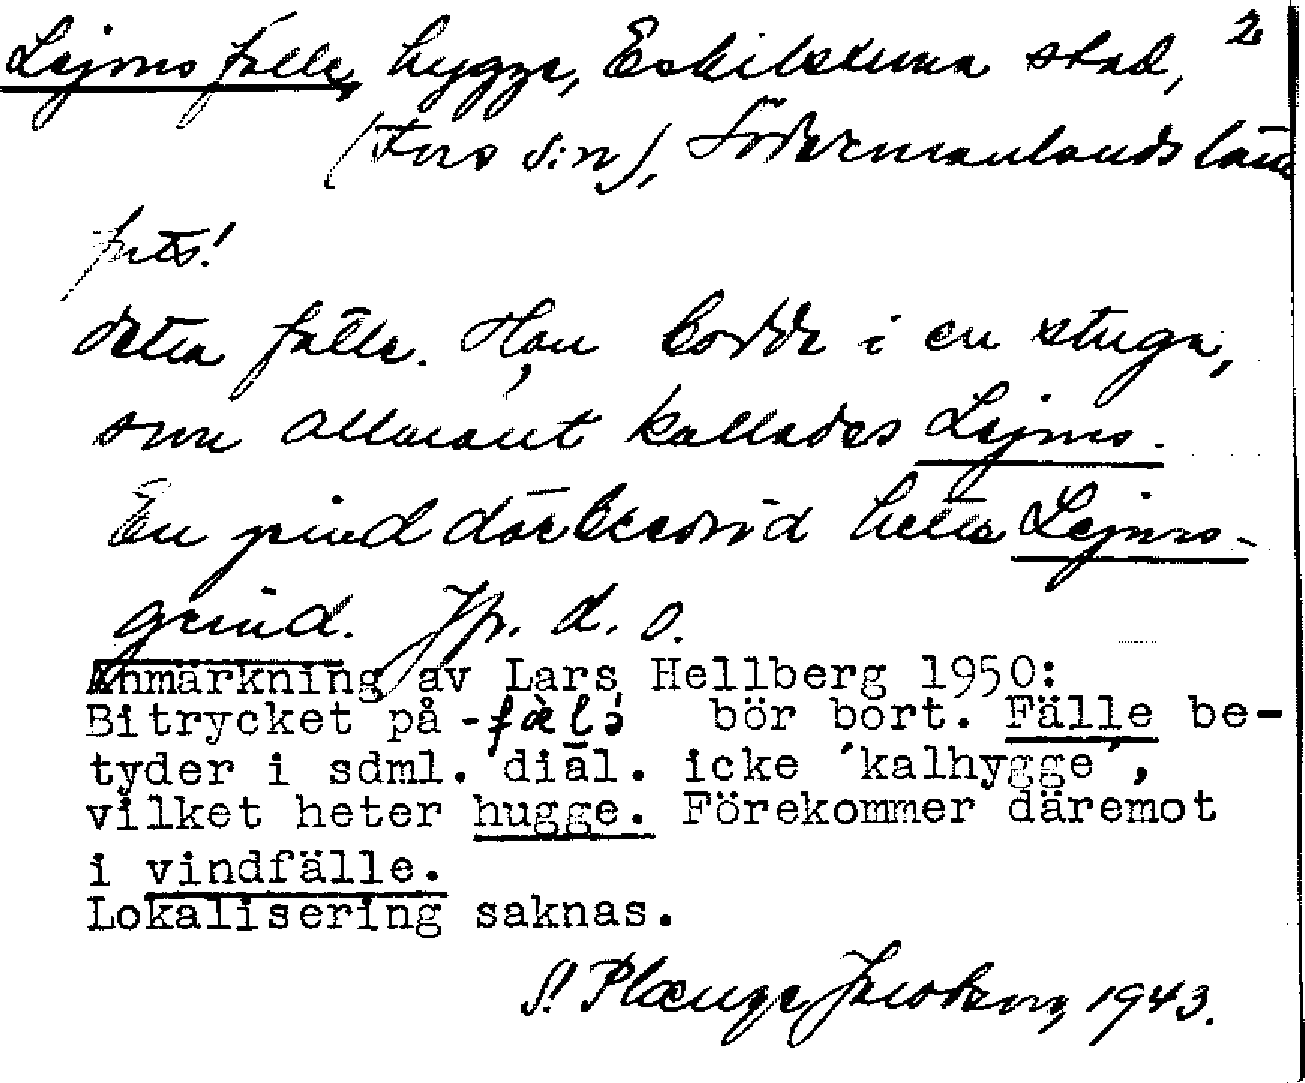 Lejmsfälle, hygge, Eskilstuna stad, 2
(Fors s:n), Södermanlands län
forts!
detta fälle. Han bodde i en stuga,
som allmänt kallades Lejms.
En grind därbredvid hette Lejms-
grind. Jfr. d. o.
Anmärkning av Lars Hellberg 1950:
Bitrycket på -fàlə bör bort. Fälle be-
tyder i sdml. dial. icke ´kalhygge´,
vilket heter hugge. Förekommer däremot
i vindfälle.
Lokalisering saknas.
S! Plænge Jacobson, 1943.